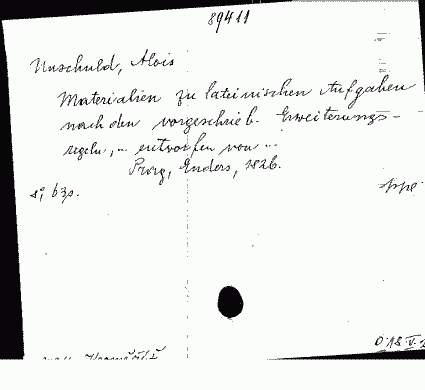 89411
Unschuld, Alois
Materialien zu lateinischen Aufgaben
nach den vorgeschrieb. Erweiterungs-
regeln, .. entworfen von ...
Prag, Enders, 1826.
8°, 63p. Appe
D 18 V.